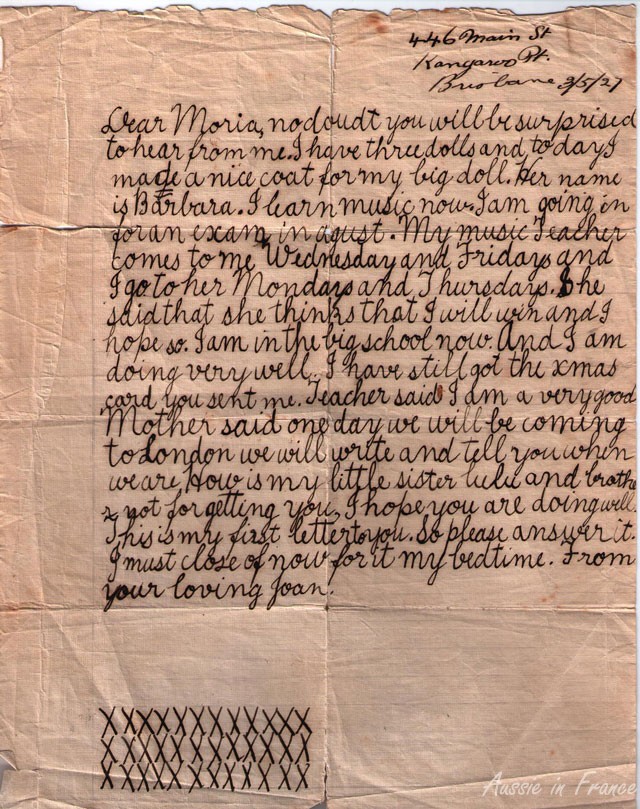 446 Main St
Kangaroo Pt.
Brisbane 3/5/27
Dear Moria, no doudt you will be surprised
to hear from me. I have three dolls and to day I
made a nice coat for my big doll. Her name
is Barbara. I learn music now. I am going in
for an exam, in agust. My music Teacher
comes to me Wednesday and Fridays and
I go to her Mondays and Thursdays. She
said that she thinks that I will win and I
hope so. I am in the big school now. And I am
doing very well. I have still got the xmas
card you sent me. Teacher said I am a very good
Mother said one day we will be coming
to London we will write and tell you when
we are, How is my little sister lulu and brothe
not for getting you, I hope you are doing well.
This is my first letter to you. So please answer it.
I must close of now for it my bedtime. From
your loving Joan.
XXXXXXXXXXXXX
XXXXXXXXXXXX
XXXXXXXXXXXX
Aussie in France